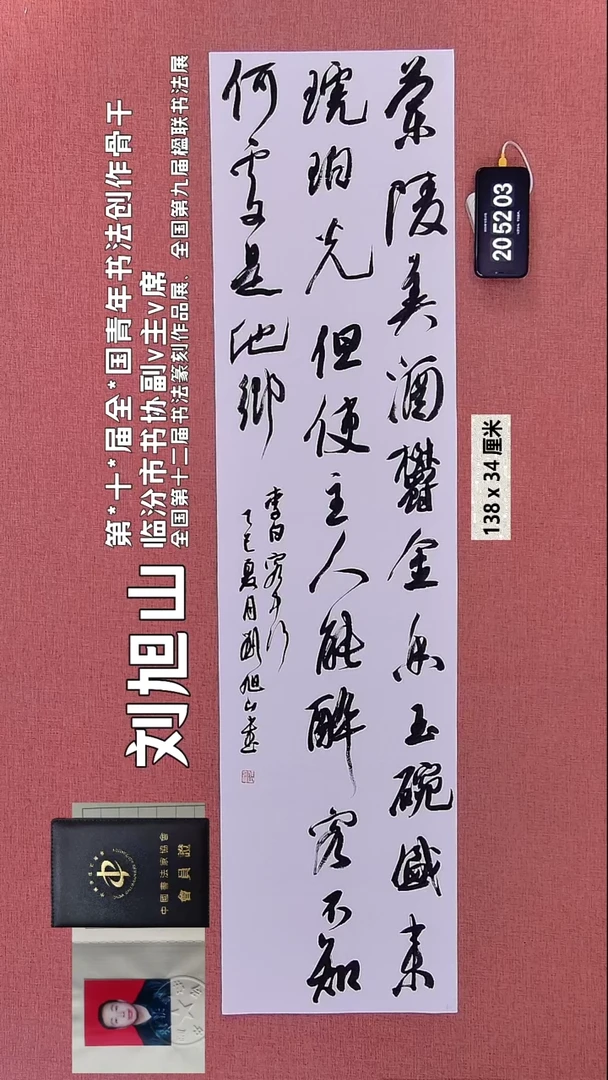 蘭陵美酒鬱金香玉碗盛來
琥珀光但使主人能醉客不知
何處是他鄉
李白客中行
乙巳夏月劉旭山書
第*十*届全*国青年书法创作骨干
临汾市书协副v主v席
全国第十二届书法篆刻作品展、全国第九届楹联书法展
刘旭山
20 52 03
138 x 34 厘米
中國書法家協會
會員證